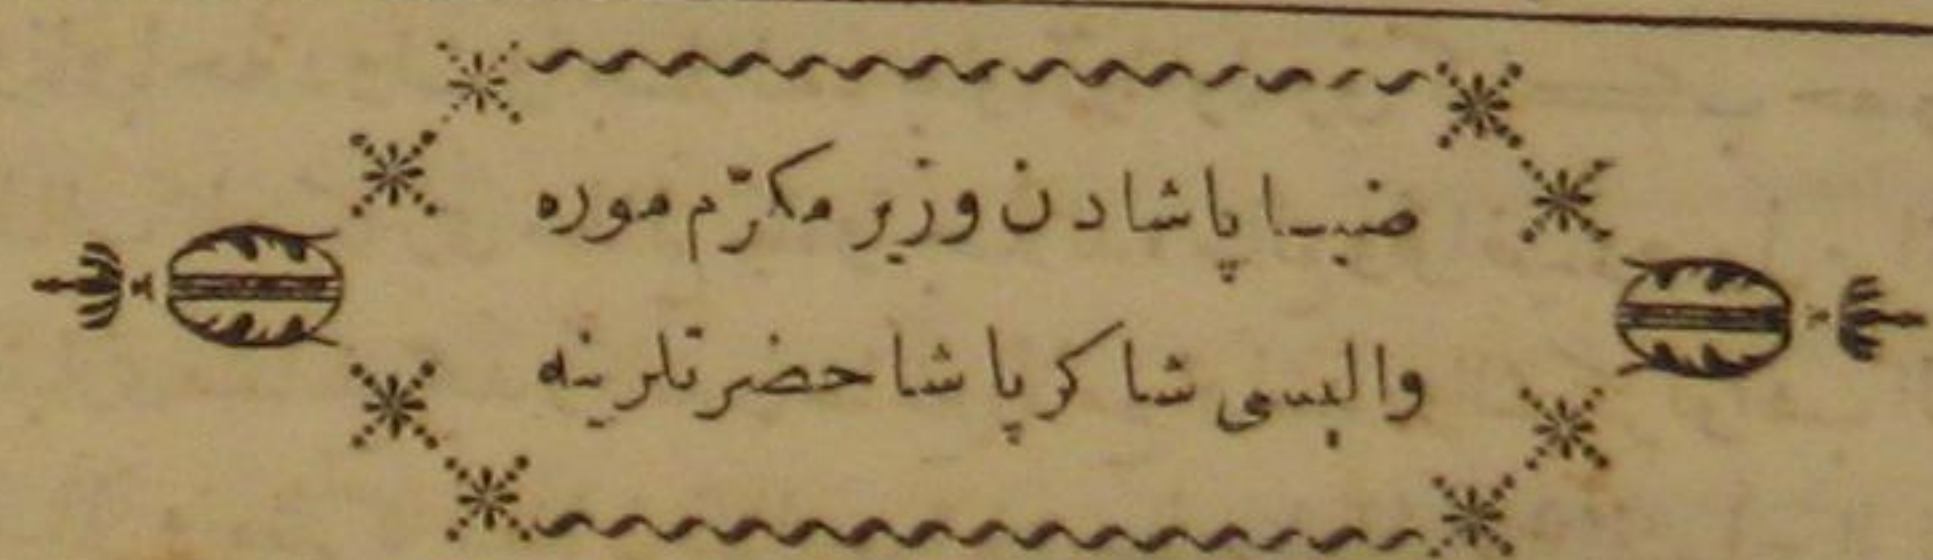 ضیا پاشادن وزیر مکرّم موره
والیسی شاکر پاشا حضرتلرینه